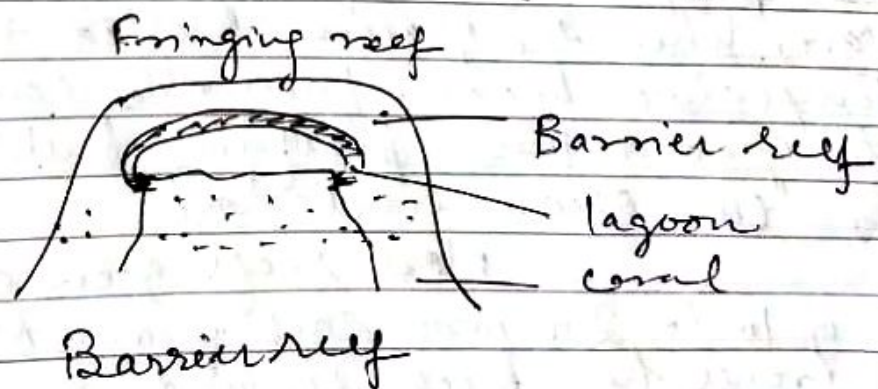 Fringing reef
Barrier reef
lagoon
coral
Barrier reef